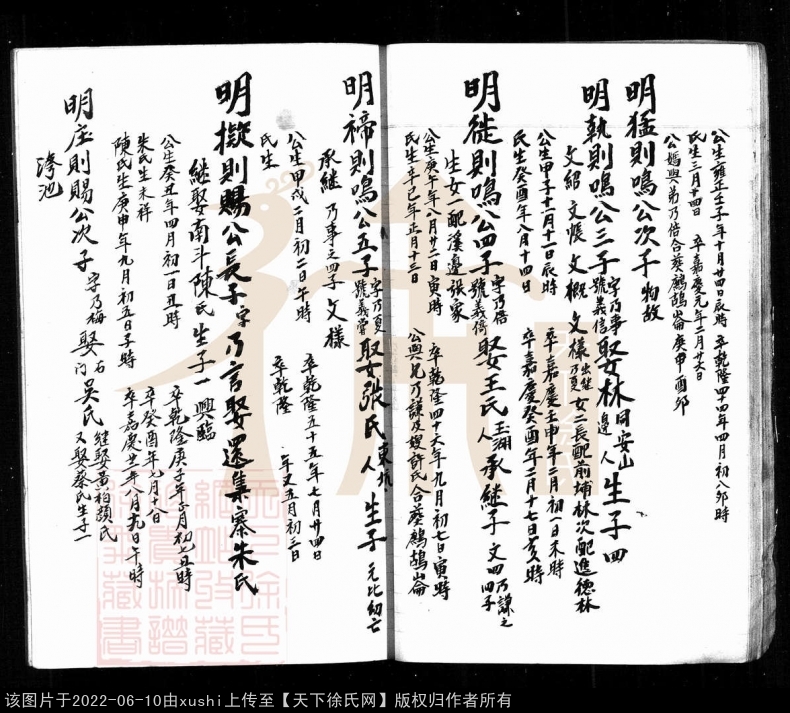 公生雍正壬子年十月廿四日辰時 卒乾隆四十四年四月初八卯時
氏生三月十四日 卒嘉慶元年二月廿六日
公媽與弟乃倍合葬鷓鴣崙庚甲酉卯
明猛則鳴公次子 物故
明執則鳴公三子 字乃事 號義信 娶林 同安山邊人 生子四
文紹 文悵 文概 文樣 出继乃夏 女二長配前埔林次配進德林
公生甲子十一月十一日辰時 卒嘉慶壬申年二月初一日未時
氏生癸酉年八月十四日 卒嘉慶癸酉年二月十七日亥時
明徙則鳴公四子 字乃倍 號義倚 娶王氏 玉湖人 承継子 文四 乃謙之四子
生女一配溪邊張家
公生庚午年八月廿二日寅時 卒乾隆四十六年九月初七日寅時
氏生辛巳年正月十三日 公與兄乃謙及嫂許氏合葬鷓鴣崙
明禘則鳴公五子 字乃夏 號義當 娶張氏 東坑人 生子 元比幼亡
承継 乃事之四子 文樣
公生甲戌二月初二日午時 卒乾隆五十五年七月廿四日
氏生 卒乾隆 年又五月初三日
明擬則賜公長子 字乃言 娶還集寨朱氏
継娶南斗陳氏 生子一 興臨
公生癸丑年四月初一日丑時 卒乾隆庚子年正月初七丑時
朱氏生未祥 卒癸酉年九月十八
陳氏生庚申年九月初五日子時 卒嘉慶廿一年八月十九日午時
明庄則賜公次子 字乃梅 娶石門吳氏 継娶黄柏頭氏 又娶蔡氏生子一
濘池
该图片于2022-06-10由xushi上传至【天下徐氏网】版权归作者所有